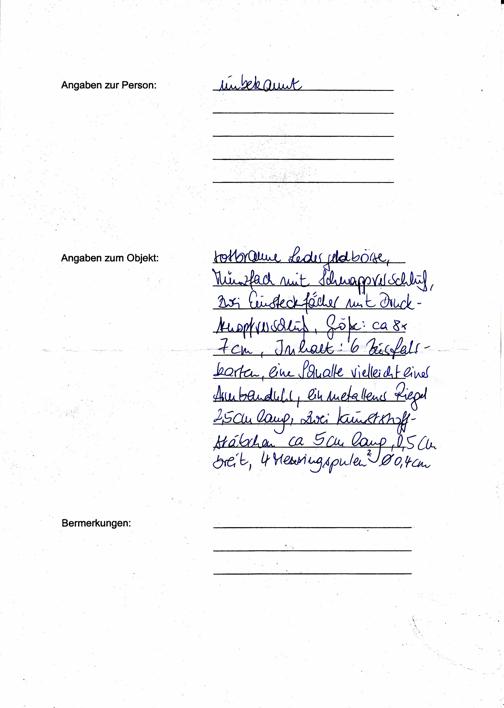 Angaben zur Person:
unbekannt
Angaben zum Objekt:
rotbraune Ledergeldbörse,
Münzfach mit Schnappverschluß,
zwei Einsteckfächer mit Druck-
knopfverschluß, Größe: ca 8x
7cm, Inhalt: 6
karten, eine Schnalle vielleicht eines
Armbanduhr, ein metallenes Riegel
2,5cm lang, zwei Kunststoff-
stäbchen ca 5cm lang, 0,5cm
breit, 4 Messingspulen Ø 0,4cm
Bermerkungen: